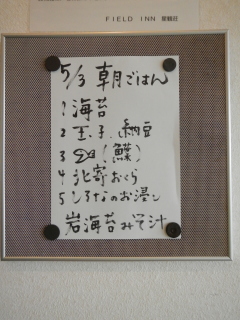 FIELD INN
5/3 朝ごはん
1 海苔
2 玉子、納豆
3 (鰈)
4 北寄おくら
5 しろなのお浸し
岩海苔みそ汁